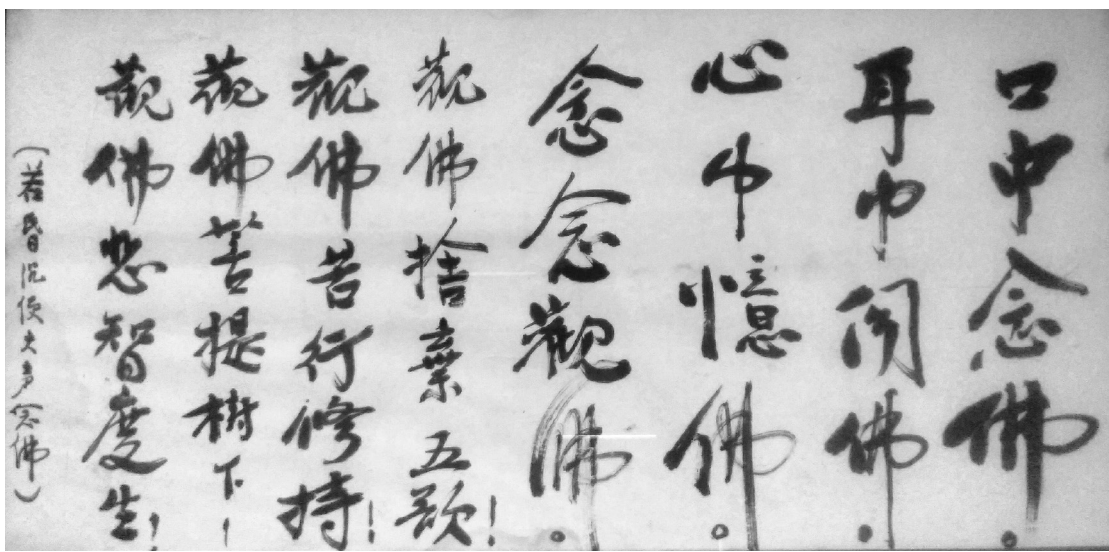 口中念佛。
耳中闻佛。
心中憶佛。
念念觀佛。
观佛捨棄五欲！
观佛苦行修持！
观佛菩提樹下！
观佛悲智度生！
（若昏沉便大声念佛）